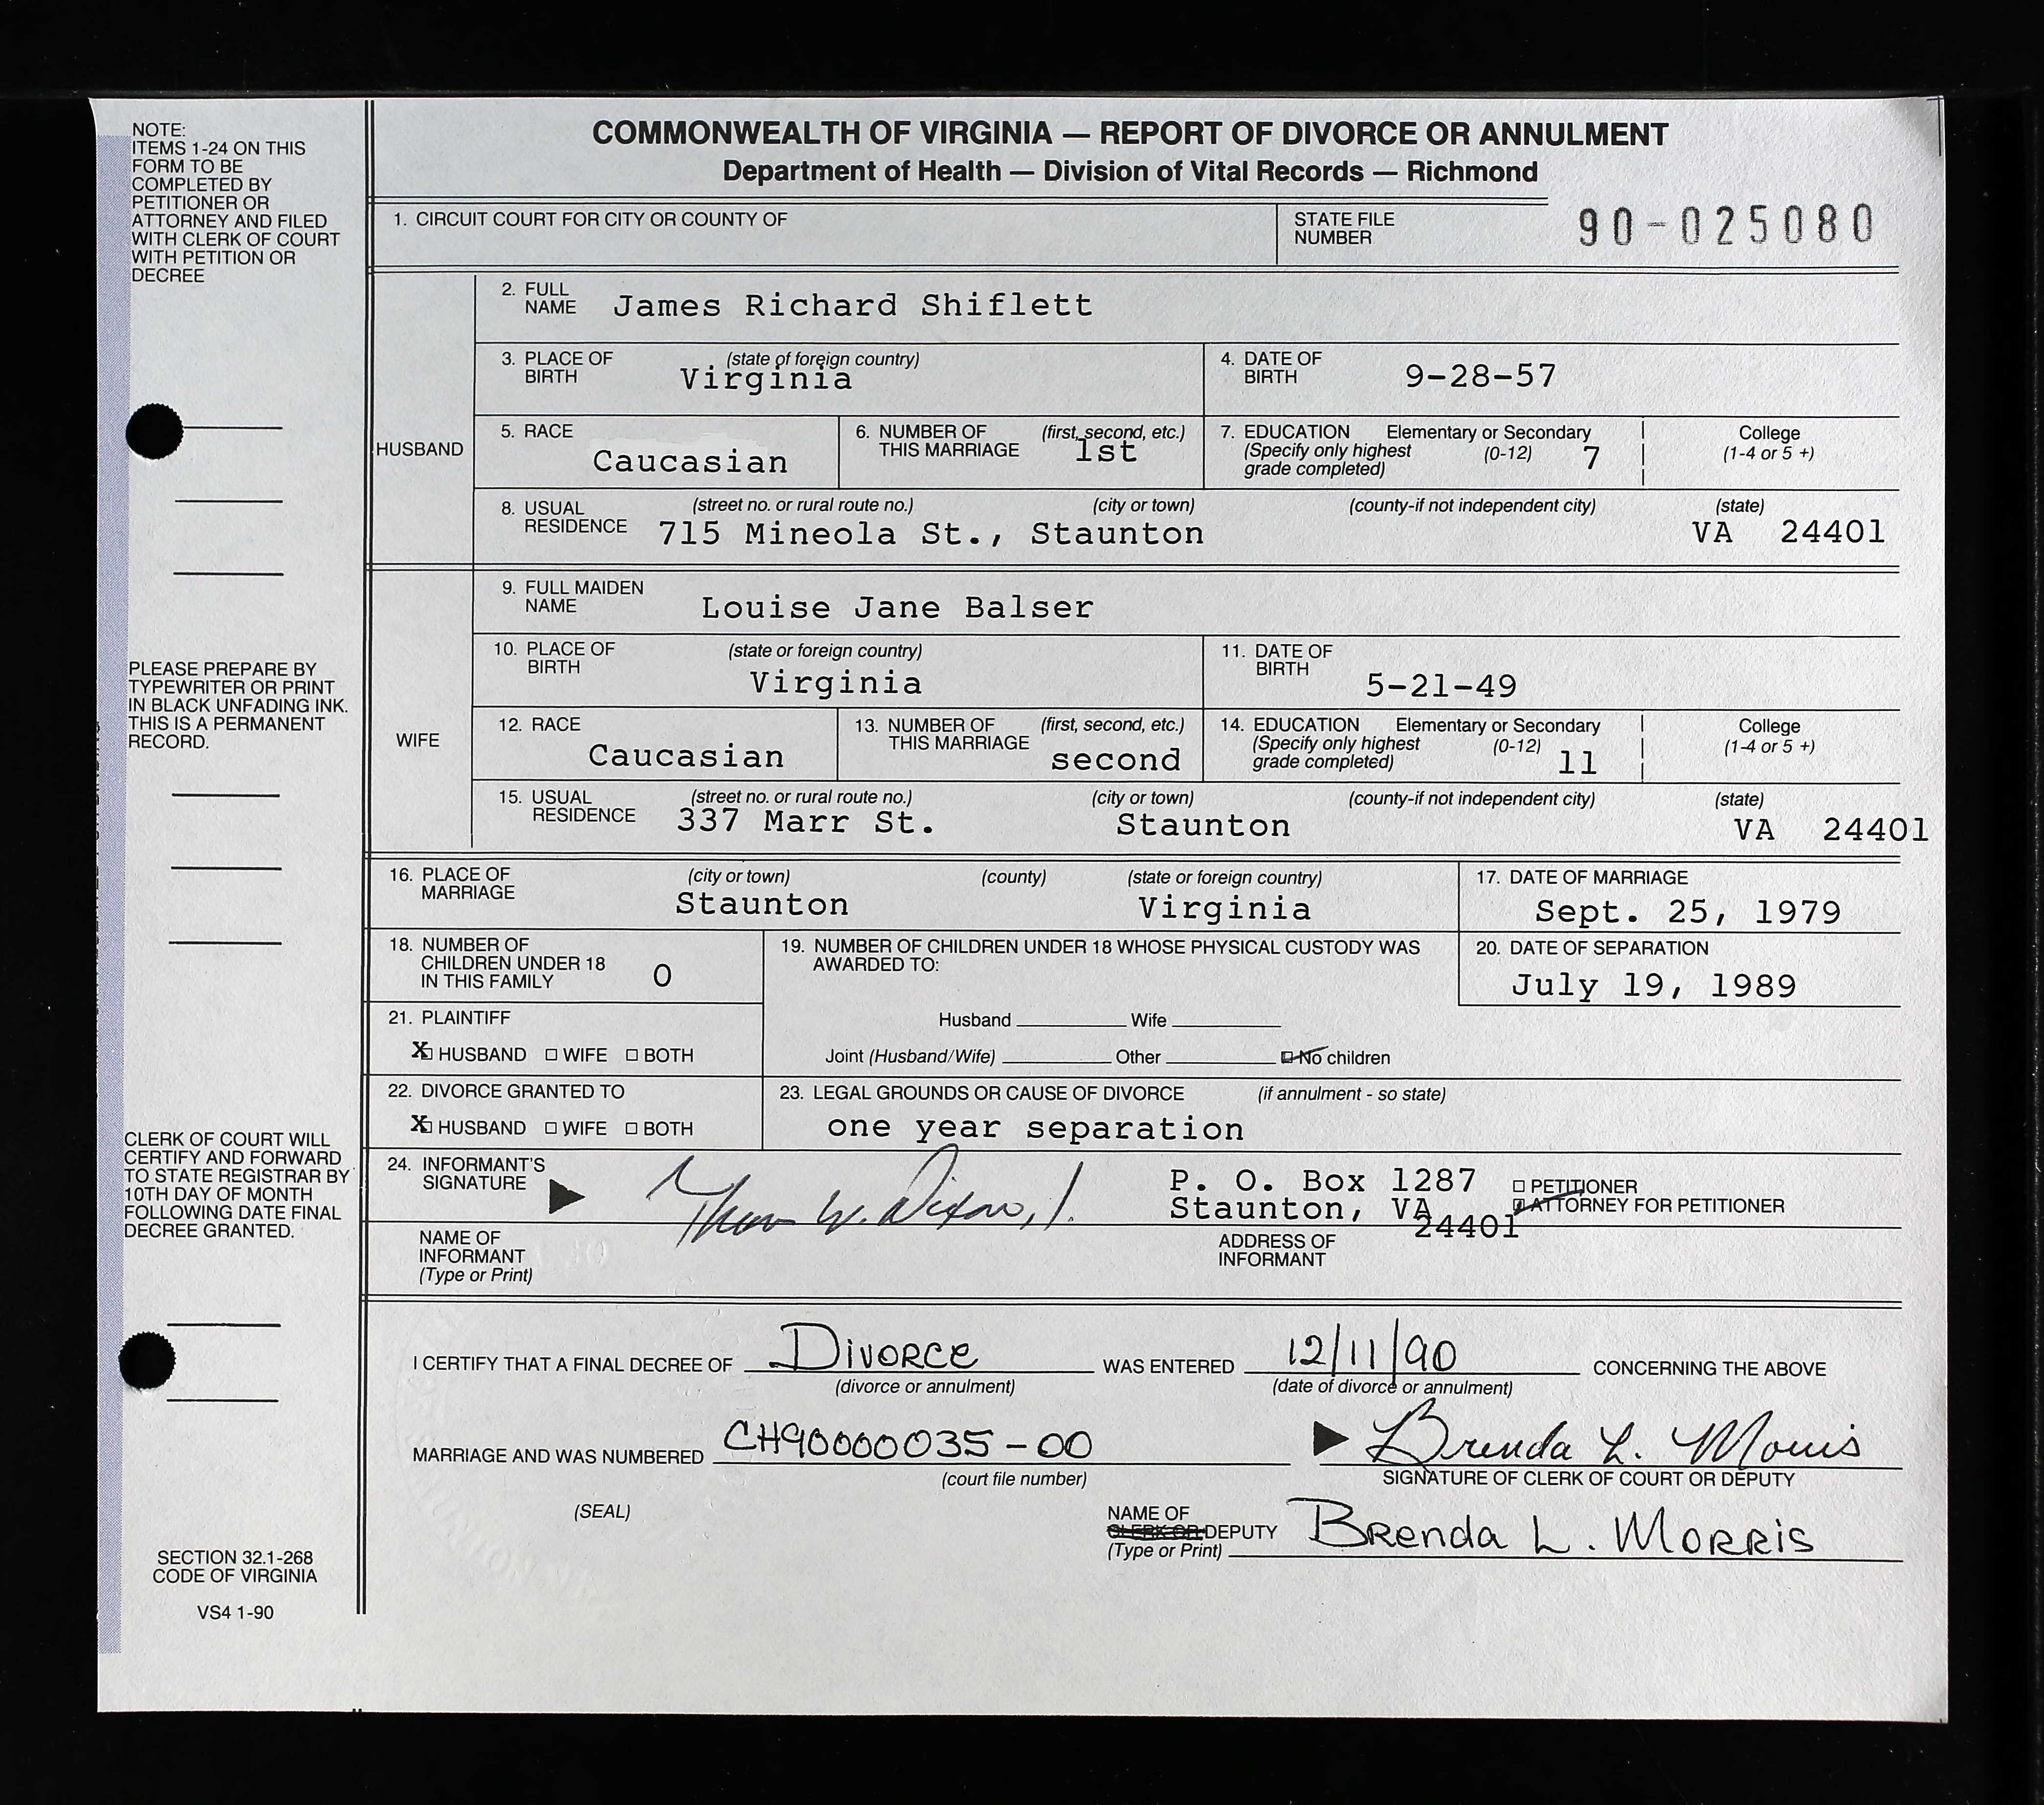 COMMONWEALTH OF VIRGINIA — REPORT OF DIVORCE OR ANNULMENT
Department of Health — Division of Vital Records — Richmond
NOTE:
ITEMS 1-24 ON THIS
FORM TO BE
COMPLETED BY
PETITIONER OR
ATTORNEY AND FILED
WITH CLERK OF COURT
WITH PETITION OR
DECREE
1. CIRCUIT COURT FOR CITY OR COUNTY OF
STATE FILE
NUMBER
90-025080
HUSBAND
2. FULL
NAME James Richard Shiflett
3. PLACE OF (state of foreign country)
BIRTH Virginia
4. DATE OF
BIRTH 9-28-57
5. RACE
Caucasian
6. NUMBER OF (first, second, etc.)
THIS MARRIAGE 1st
7. EDUCATION Elementary or Secondary College
(Specify only highest (0-12) 7 (1-4 or 5 +)
grade completed)
8. USUAL (street no. or rural route no.) (city or town) (county-if not independent city) (state)
RESIDENCE 715 Mineola St., Staunton VA 24401
WIFE
9. FULL MAIDEN
NAME Louise Jane Balser
10. PLACE OF (state or foreign country)
BIRTH Virginia
11. DATE OF
BIRTH 5-21-49
12. RACE
Caucasian
13. NUMBER OF (first, second, etc.)
THIS MARRIAGE second
14. EDUCATION Elementary or Secondary College
(Specify only highest (0-12) 11 (1-4 or 5 +)
grade completed)
15. USUAL (street no. or rural route no.) (city or town) (county-if not independent city) (state)
RESIDENCE 337 Marr St. Staunton VA 24401
PLEASE PREPARE BY
TYPEWRITER OR PRINT
IN BLACK UNFADING INK.
THIS IS A PERMANENT
RECORD.
16. PLACE OF (city or town) (county) (state or foreign country)
MARRIAGE Staunton Virginia
17. DATE OF MARRIAGE
Sept. 25, 1979
18. NUMBER OF
CHILDREN UNDER 18
IN THIS FAMILY 0
19. NUMBER OF CHILDREN UNDER 18 WHOSE PHYSICAL CUSTODY WAS
AWARDED TO:
Husband Wife
Joint (Husband/Wife) Other No children
20. DATE OF SEPARATION
July 19, 1989
21. PLAINTIFF
X HUSBAND WIFE BOTH
22. DIVORCE GRANTED TO
X HUSBAND WIFE BOTH
23. LEGAL GROUNDS OR CAUSE OF DIVORCE (if annulment - so state)
one year separation
24. INFORMANT'S
SIGNATURE
Thomas W. Dixon, Jr.
P. O. Box 1287
Staunton, VA
24401
PETITIONER
ATTORNEY FOR PETITIONER
NAME OF
INFORMANT
(Type or Print)
ADDRESS OF
INFORMANT
CLERK OF COURT WILL
CERTIFY AND FORWARD
TO STATE REGISTRAR BY
10TH DAY OF MONTH
FOLLOWING DATE FINAL
DECREE GRANTED.
I CERTIFY THAT A FINAL DECREE OF Divorce WAS ENTERED 12/11/90 CONCERNING THE ABOVE
(divorce or annulment) (date of divorce or annulment)
MARRIAGE AND WAS NUMBERED CH90000035-00 Brenda L. Morris
(court file number) SIGNATURE OF CLERK OF COURT OR DEPUTY
(SEAL)
NAME OF
CLERK OR DEPUTY Brenda L. Morris
(Type or Print)
SECTION 32.1-268
CODE OF VIRGINIA
VS4 1-90